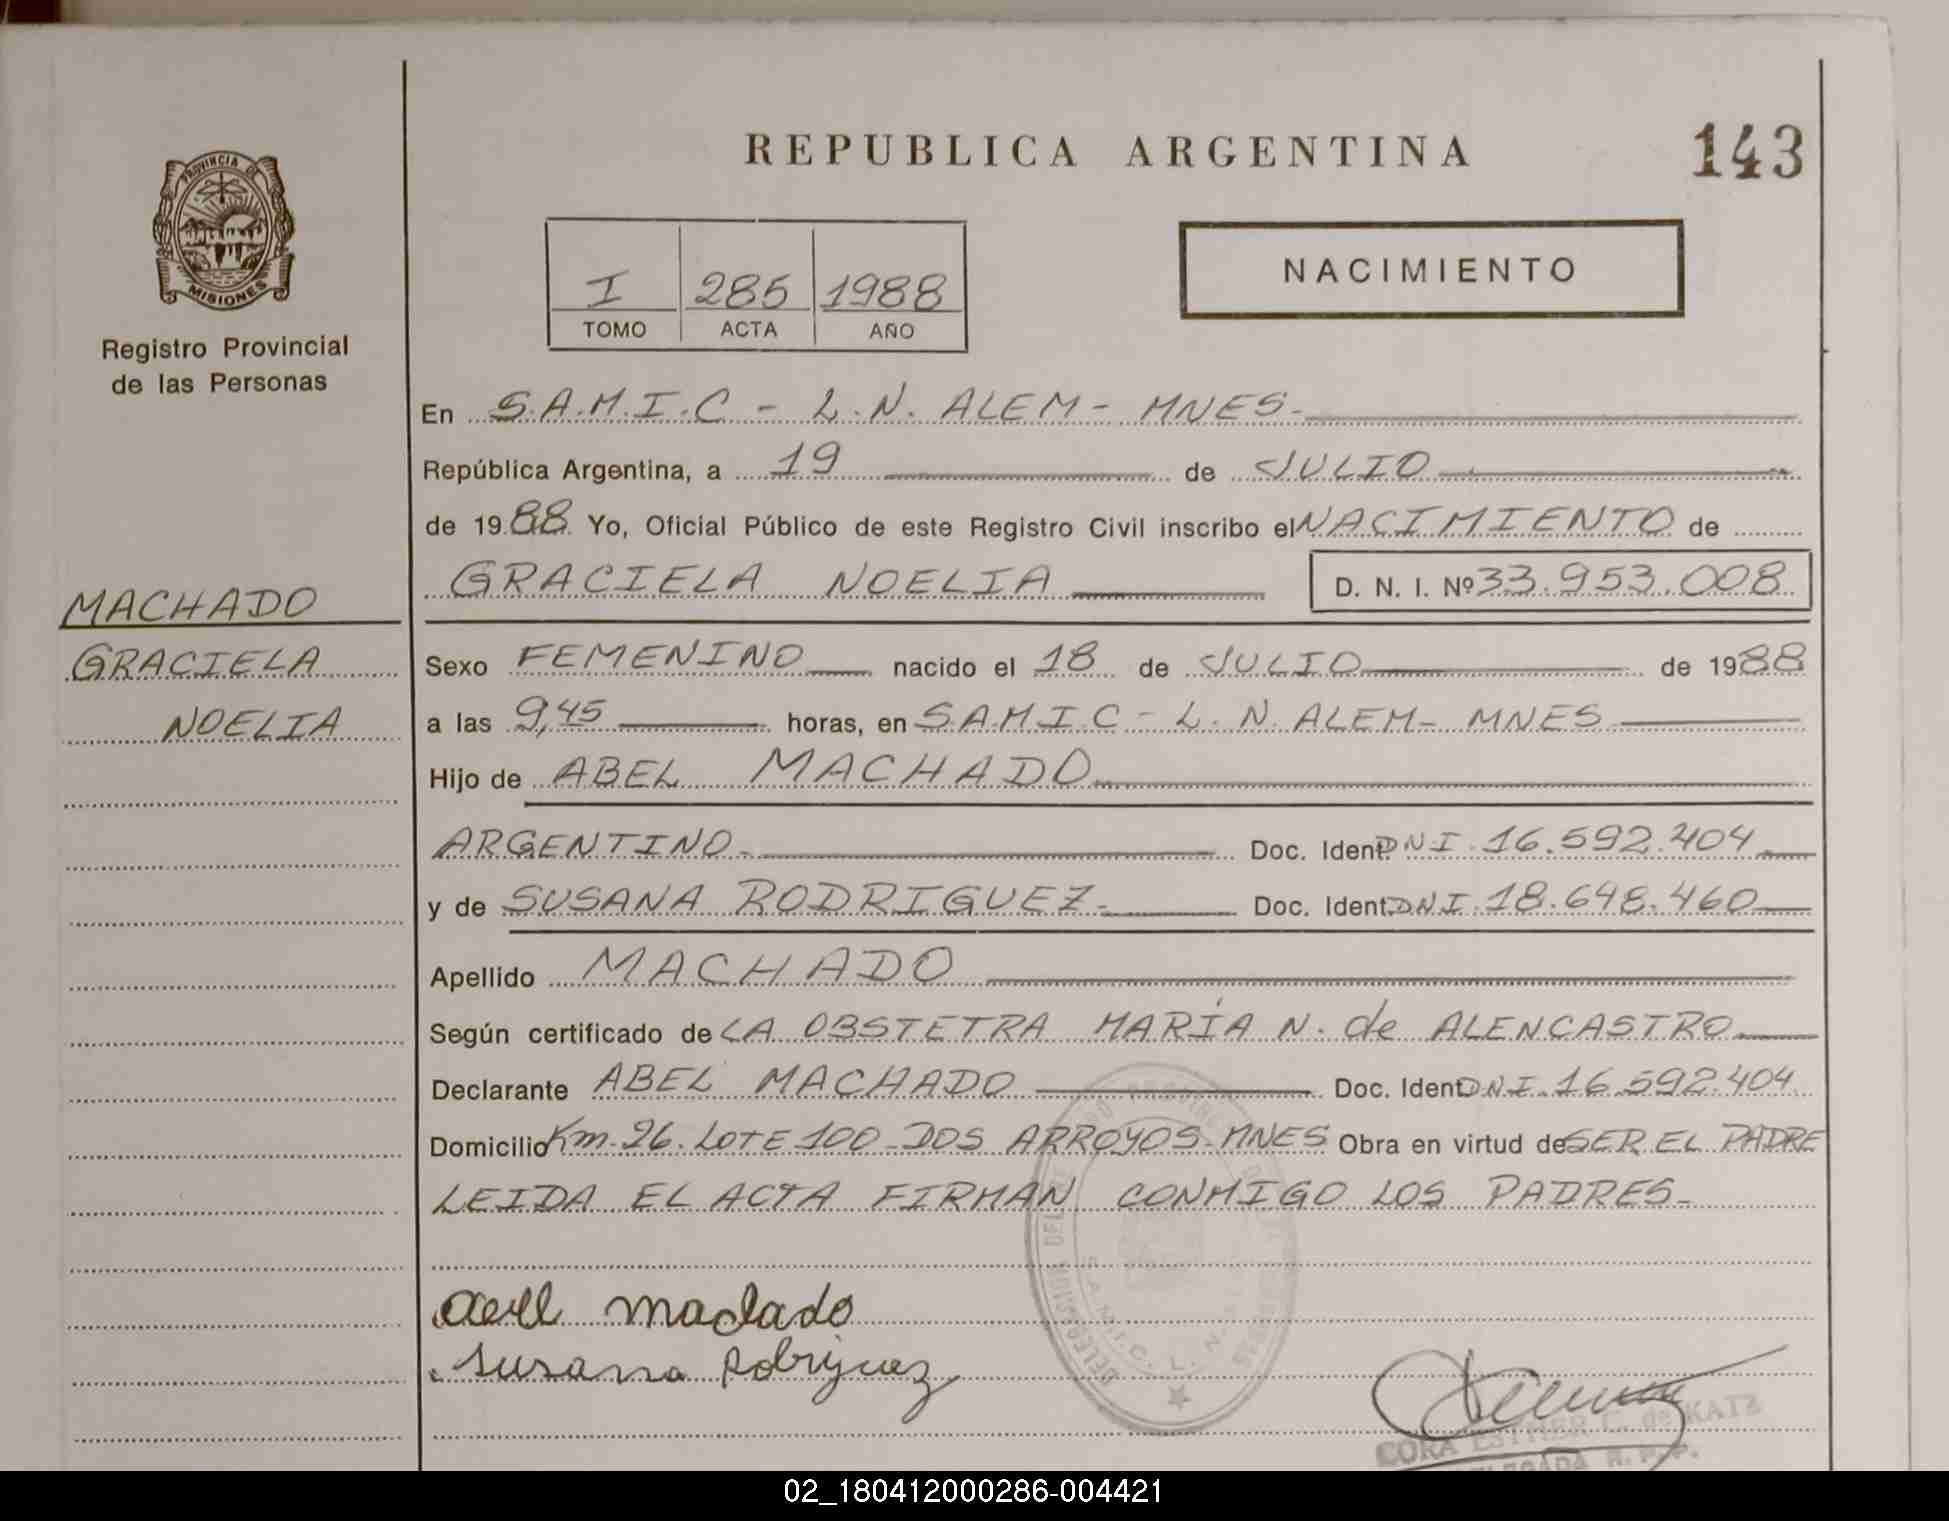 REPUBLICA ARGENTINA
143
PROVINCIA DE
MISIONES
Registro Provincial
de las Personas
I 285 1988
TOMO ACTA AÑO
NACIMIENTO
En S.A.M.I.C - L.N. ALEM - MNES.
República Argentina, a 19 de JULIO
de 1988 Yo, Oficial Público de este Registro Civil inscribo el NACIMIENTO de
GRACIELA NOELIA D. N. I. Nº 33.953.008
MACHADO
GRACIELA
NOELIA
Sexo FEMENINO nacido el 18 de JULIO de 1988
a las 9,45 horas, en S.A.M.I.C - L.N. ALEM - MNES
Hijo de ABEL MACHADO
ARGENTINO. Doc. Ident. DNI. 16.592.404
y de SUSANA RODRIGUEZ. Doc. Ident. DNI. 18.648.460
Apellido MACHADO
Según certificado de LA OBSTETRA MARÍA N. de ALENCASTRO
Declarante ABEL MACHADO Doc. Ident. DNI. 16.592.404
Domicilio Km. 26. LOTE 100 - DOS ARROYOS - MNES Obra en virtud de SER EL PADRE
LEIDA EL ACTA FIRMAN CONMIGO LOS PADRES -
Susana Rodriguez
S.A.M.I.C. L. N.
CORA ESTHER C. de KATZ
DELEGADA R. P. P.
02_180412000286-004421